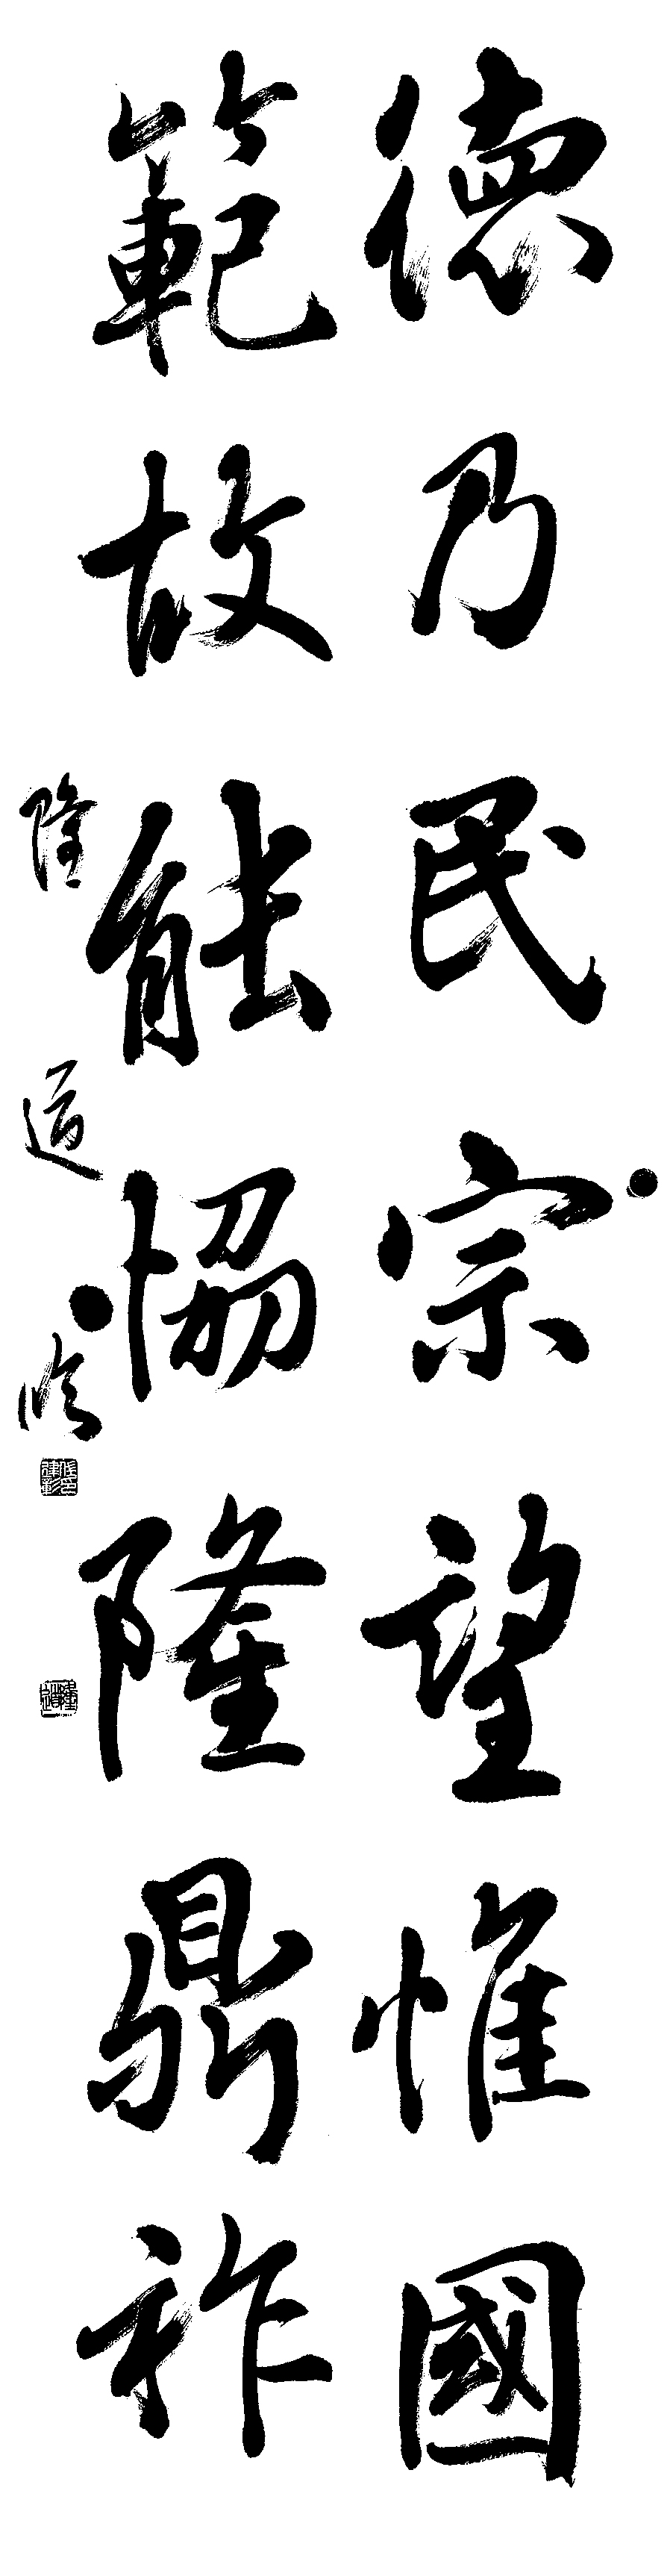 德乃民宗望惟國
範故能協隆鼎祚
隆道臨